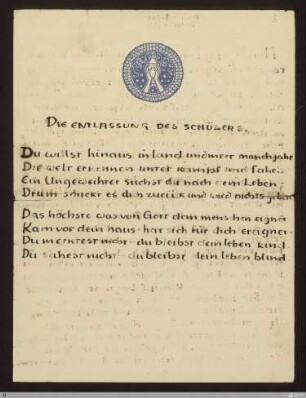 DIE ENTLASSUNG DES SCHÜLERS.
Du willst hinaus in land und meer manch jahr
Die welt erkennen unter kampf und fahr..
Ein Ungeweihter suchst du nach dem Leben:
Drum schickt es dich zurück und wird nichts geben
Das höchste was von Gott dem menschen eignet
Kam vor dein haus · hat sich für dich ereignet ·
Du merktest nicht · du bleibst dein leben kind
Du sahest nicht · du bleibst dein leben blind